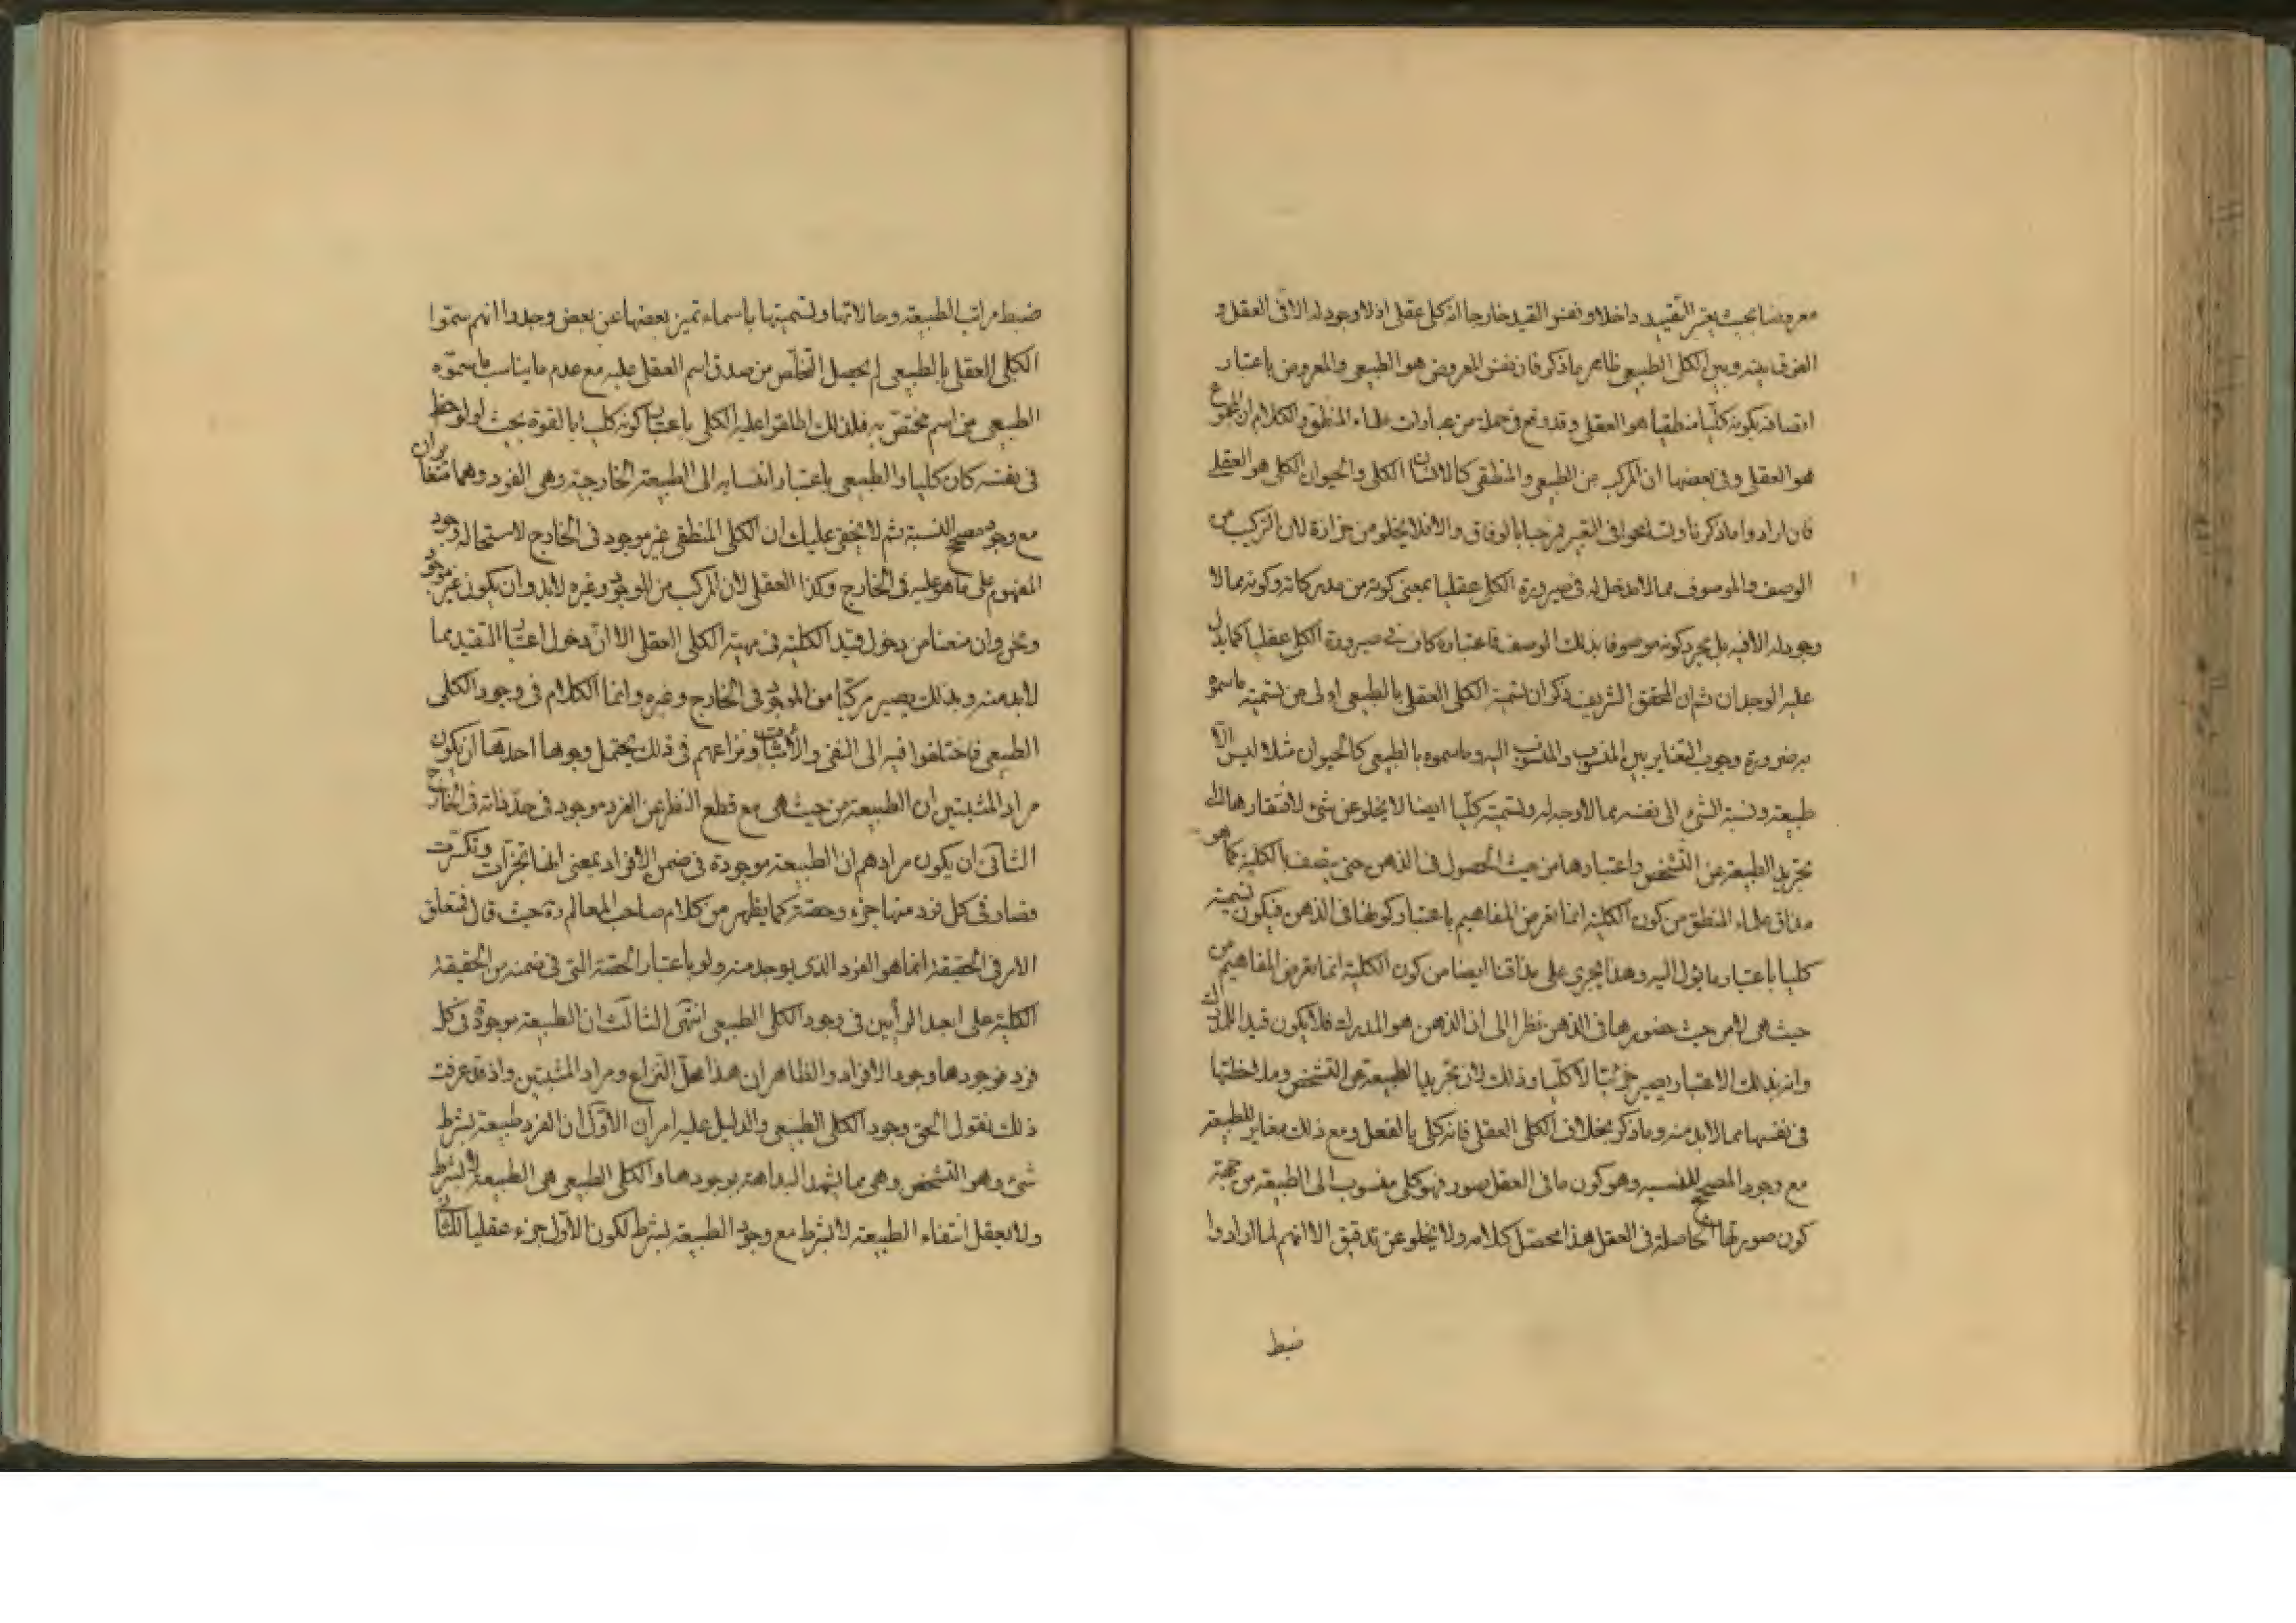 معروضا بحيث يعتبر التقييد داخلا ونفس القيد خارجا انه كلى عقلى اذ لا وجود له الا فى العقل و
الفرق بينه وبين الكلى الطبيعى ظاهر مما ذكر فان نفس المعروض هو الطبيعى والمعروض باعتبار
اتصافه بكونه كليّا منطقيا هو العقلى وقد وقع فى جملة من عبارات علماء المنطق والكلام ان المجموع
هو العقلى وفى بعضها ان المركب من الطبيعى والمنطقى كالانسان الكلى والحيوان الكلى هو العقلى
فان ارادوا ما ذكرنا وتسامحوا فى التعبير فمرحبا بالوفاق والا فلا يخلو من حزازة لان التركيب من
الوصف والموصوف مما لا مدخل له فى صيرورة الكلى عقليا بمعنى كونه من مدركاته وكونه مما لا
وجود له الا فيه بل مجرد كونه موصوفا بذلك الوصف فاعتباره كاف فى صيرورة الكلى عقليا كما يدل
عليه الوجدان ثم ان المحقق الشريف ذكر ان تسمية الكلى العقلى بالطبيعى اولى من تسمية ما سموه
به ضرورة وجوب التغاير بين المنسوب والمنسوب اليه وما سموه بالطبيعى كالحيوان مثلا ليس الا
طبيعة ونسبة الشئ الى نفسه مما لا وجه له وتسميته كليّا ايضا لا يخلو عن شئ لافتقارها الى
تجريد الطبيعة عن التشخص واعتبارها من حيث الحصول فى الذهن حتى يتصف بالكلية كما هو
مذاق علماء المنطق من كون الكلية انما تعرض المفاهيم باعتبار كونها فى الذهن فيكون تسميته
كليا باعتبار ما يؤل اليه وهذا يجرى على مذاقنا ايضا من كون الكلية انما تعرض المفاهيم من
حيث هى لا من حيث حضورها فى الذهن نظرا الى ان الذهن هو المدرك فلا يكون قيدا للمدرك
وانه بذلك الاعتبار يصير جزئيّا لا كليّا وذلك لان تجريد الطبيعة عن التشخص وملاحظتها
فى نفسها مما لا بد منه وما ذكر بخلاف الكلى العقلى فانه كلى بالفعل ومع ذلك مغاير للطبيعة
مع وجود المصحح للنسبة وهو كون ما فى العقل صور فهو كلى منسوب الى الطبيعة من جهة
كون صورتها الحاصلة فى العقل هذا محصّل كلامه ولا يخلو عن تدقيق الا انهم لما ارادوا
ضبط
ضبط مراتب الطبيعة وحالاتها وتسميتها باسماء تميز بعضها عن بعض وجدوا انهم سمّوا
الكلى العقلى بالطبيعى لم يحصل التخلّص من صدق اسم العقلى عليه مع عدم ما يناسب ما سمّوه
الطبيعى من اسم مختصّ به فلذلك اطلقوا عليه الكلى باعتبار كونه كليا بالقوة بحيث لو لوحظ
فى نفسه كان كليا والطبيعى باعتبار انتسابه الى الطبيعة الخارجية وهى الفرد وهما متغايران
مع وجود مصحح للنسبة ثم لا يخفى عليك ان الكلى المنطقى غير موجود فى الخارج لاستحالة وجود
المفهوم على ما هو عليه فى الخارج وكذا العقلى لان المركب من الموجود وغيره لا بد وان يكون غير موجود
ونحن وان منعنا من دخول قيد الكلية فى مهية الكلى العقلى الا انّ دخول اعتبار التقييد مما
لا بد منه وبذلك يصير مركّبا من الموجود فى الخارج وغيره وانما الكلام فى وجود الكلى
الطبيعى فاختلفوا فيه الى النفى والاثبات ونزاعهم فى ذلك يحتمل وجوها احدها ان يكون
مراد المثبتين ان الطبيعة من حيث هى مع قطع النظر عن الفرد موجود فى حدّ ذاته فى الخارج
الثانى ان يكون مرادهم ان الطبيعة موجودة فى ضمن الافراد بمعنى انها تجزّأت وتكسّرت
فصار فى كل فرد منها جزء وحصّة كما يظهر من كلام صاحب المعالم ره حيث قال فمتعلق
الامر فى الحقيقة انما هو الفرد الذى يوجد منه ولو باعتبار الحصّة التى فى ضمنه من الحقيقة
الكلية على ابعد الرأيين فى وجود الكلى الطبيعى انتهى الثالث ان الطبيعة موجودة فى كل
فرد فوجودها وجود الافراد والظاهر ان هذا محلّ النزاع ومراد المثبتين واذ قد عرفت
ذلك نقول الحق وجود الكلى الطبيعى والدليل عليه امران الاوّل ان الفرد طبيعة بشرط
شئ وهو التشخص وهى مما يشهد البداهة بوجودها والكلى الطبيعى هى الطبيعة لا بشرط
ولا يعقل انتفاء الطبيعة لا بشرط مع وجود الطبيعة بشرط لكون الاوّل جزء عقليا للثانى